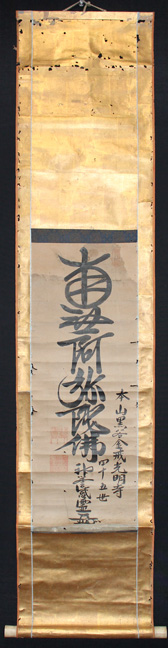 本山黒谷金戒光明寺
四十五世
南無阿弥陀佛